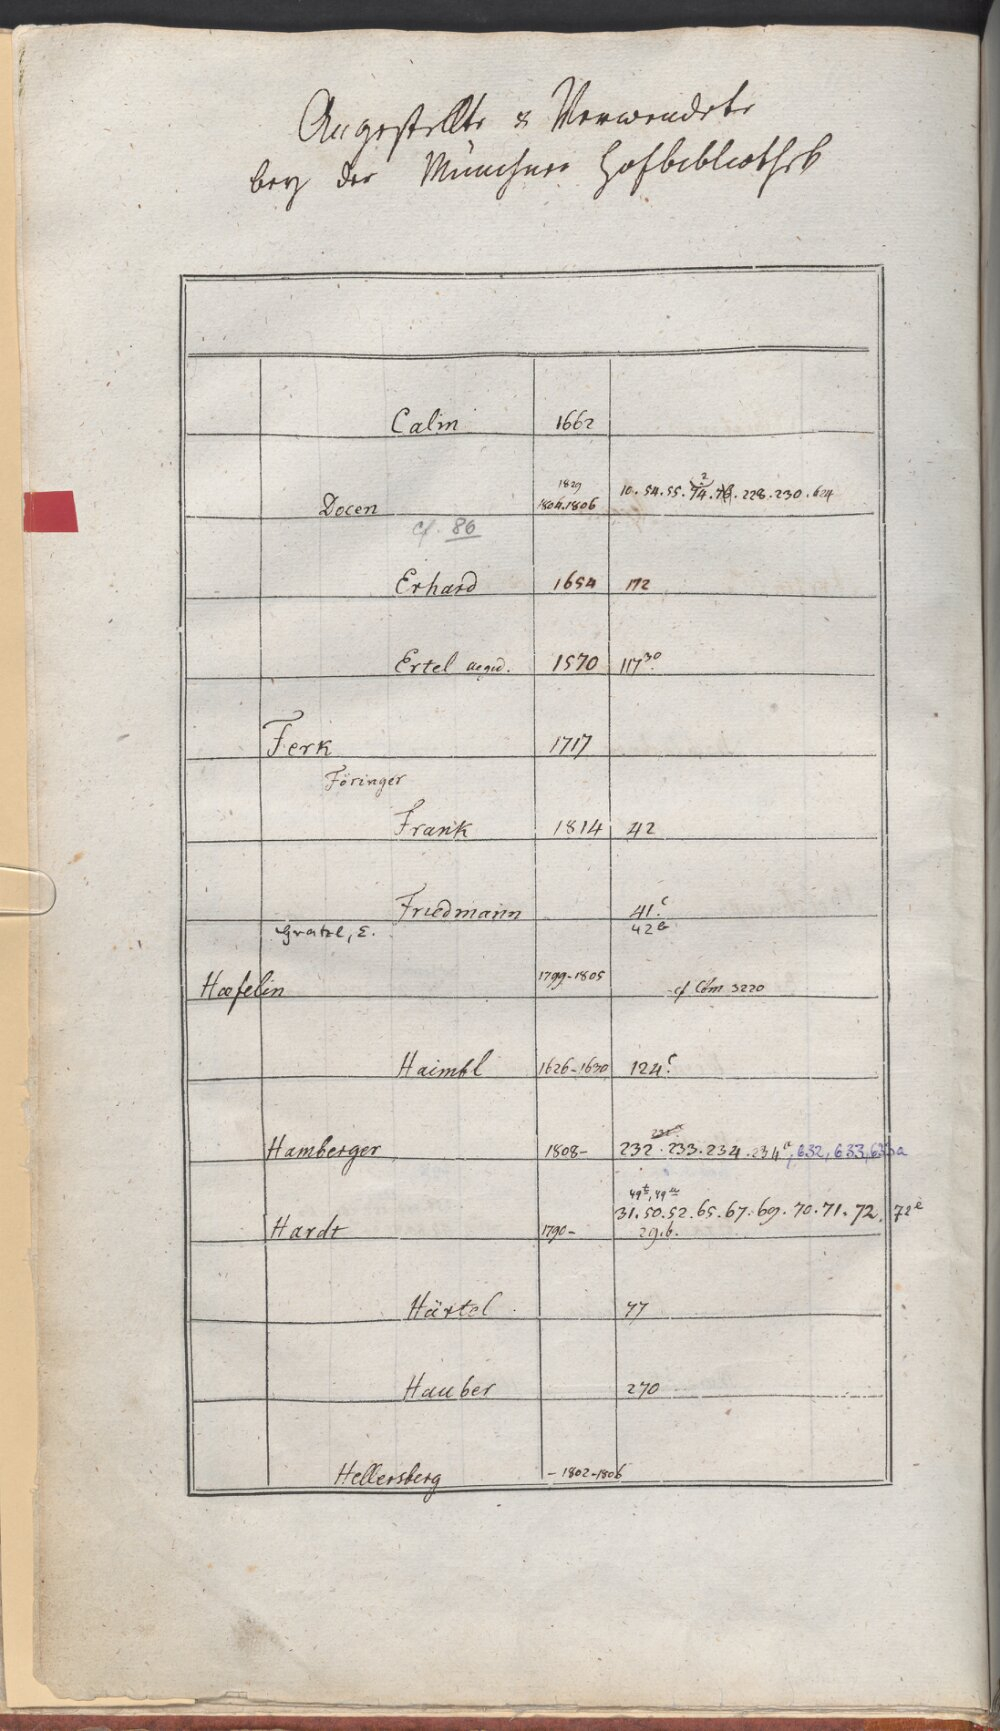 Angestellte & Verwendete
bey der Münchner Hofbibliothek
Calin 1662
Docen 1829 1804.1806 10.54.55.74.228.230.624
cf. 86
Erhard 1654 172
Ertel Aegid. 1570 117³⁰
Ferk 1717
Föringer
Frank 1814 42
Friedmann 41ᶜ
Gratzl, E. 42
Haefelin 1799-1805 cf Cbm 3220
Haimbl 1626-1630 124ᶜ
Hamberger 1808- 232.233.234.234ᵃ, 632, 633, 633a
49ᵗ, 49ᵘ
Hardt 1790- 31.50.52.65.67.69.70.71.72. 72ᵉ
29.b.
Härtel 77
Hauber 270
Hellersberg -1802-1806